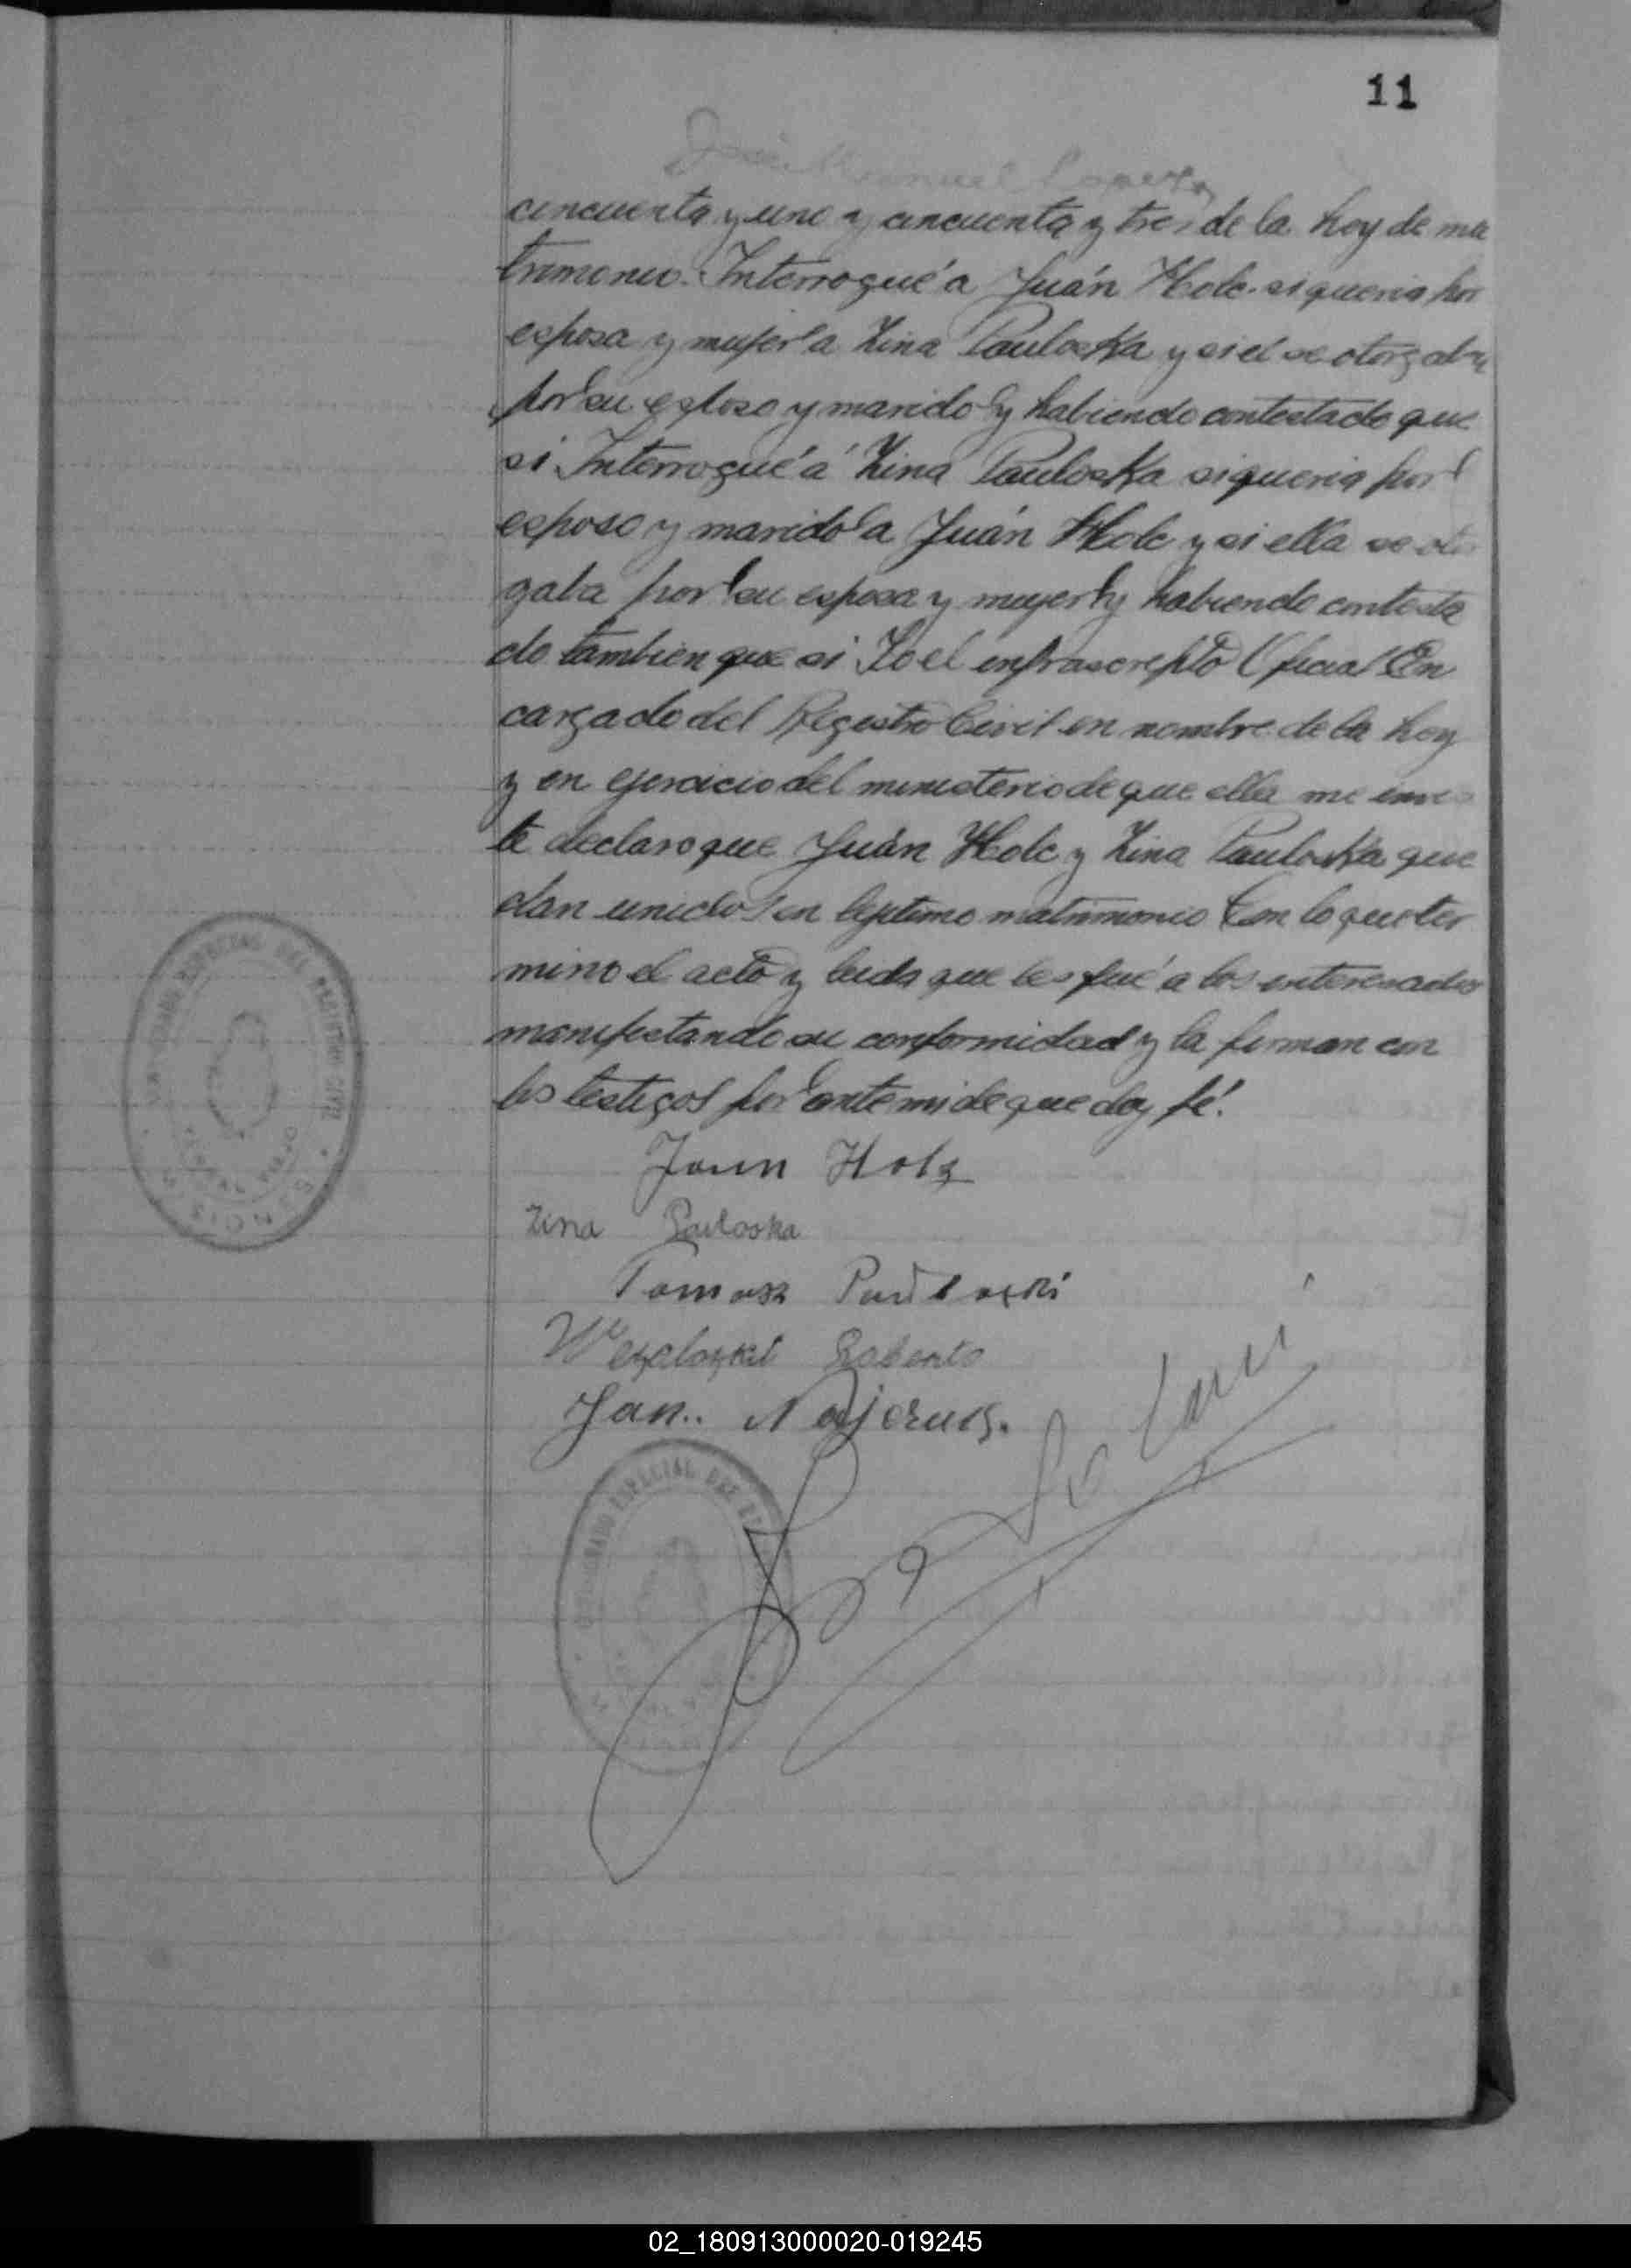 11
José Manuel Lopez
cincuenta y uno y cincuenta y tres de la ley de ma
trimonio. Interrogué a Juán Holc si queria por
esposa y mujer a Zina Pauloska y si el se otorgaba
por su esposo y marido y habiendo contestado que
si Interrogué á Zina Pauloska si queria por
esposo y marido a Juán Holc y si ella se otor
gaba por su esposa y mujer y habiendo contesta
do tambien que si Yo el infrascripto Oficial En
cargado del Registro Civil en nombre de la ley
y en ejercicio del ministerio de que ella me invis
te declaro que Juán Holc y Zina Pauloska que
dan unidos en lejitimo matrimonio Con lo que ter
mino el acto y leida que les fué a los interesados
manifestando su conformidad y la firman con
los testigos por ante mi de que doy fé.
Jann Holz
Zina Pauloska
Tomasz Pawloski
Roberto
Jan.. Najeruk.
ESPECIAL DEL REGISTRO CIVIL
ESPECIAL DEL
02_180913000020-019245